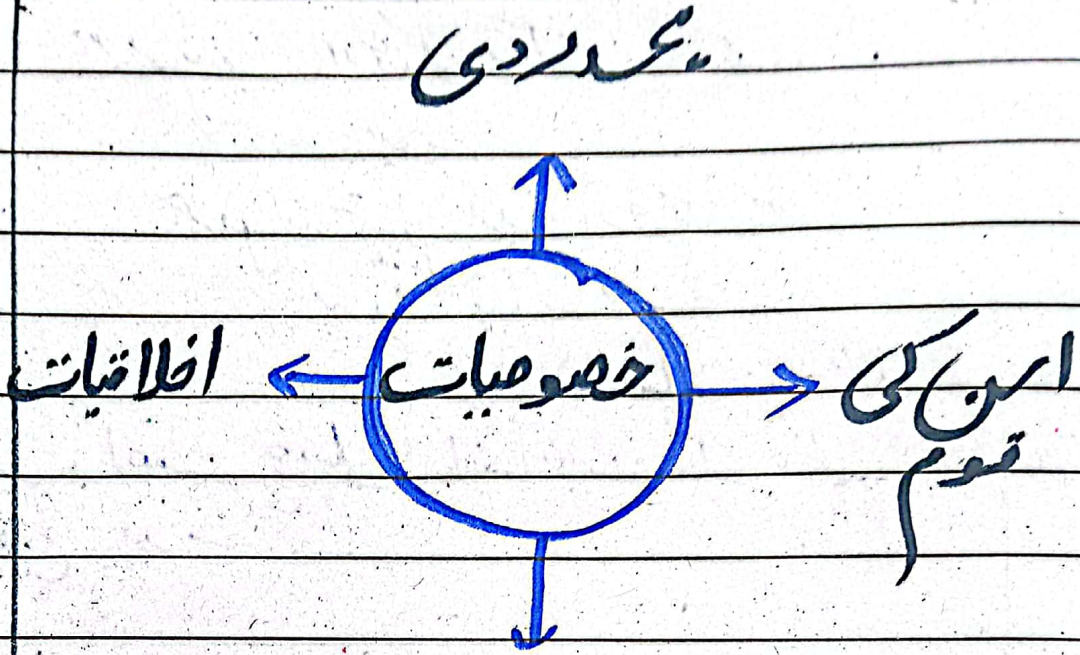 ہمدردی
اخلاقیات
خصوصیات
امن کی
قوم